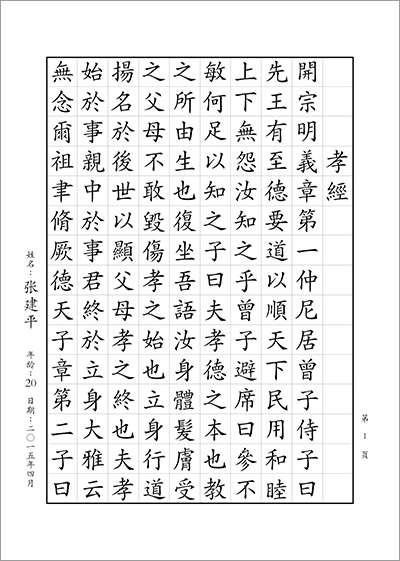 孝經
開宗明義章第一仲尼居曾子侍子曰
先王有至德要道以順天下民用和睦
上下無怨汝知之乎曾子避席曰參不
敏何足以知之子曰夫孝德之本也教
之所由生也復坐吾語汝身體髮膚受
之父母不敢毀傷孝之始也立身行道
揚名於後世以顯父母孝之終也夫孝
始於事親中於事君終於立身大雅云
無念爾祖聿脩厥德天子章第二子曰
第 1 页
姓名：张建平 年龄：20 日期：二〇一五年四月